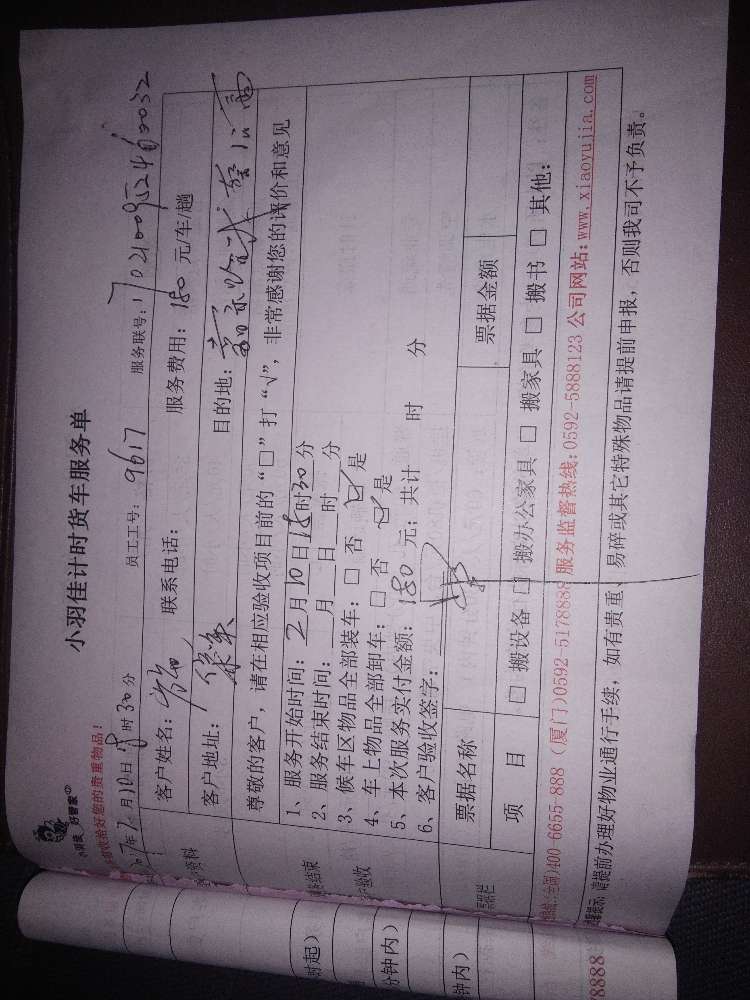 小羽佳计时货车服务单
小羽佳 好管家
收拾好您的贵重物品！
年2月10日18时30分 员工工号：9617 服务联号：1702100952460032
客户资料
客户姓名： 联系电话： 服务费用：180元/车/趟
客户地址： 目的地：
尊敬的客户，请在相应验收项目前的“□”打“√”，非常感谢您的评价和意见
1、服务开始时间：2月10日18时30分
2、服务结束时间：___月___日___时___分
3、候车区物品全部装车：□ 否 ☑ 是
4、车上物品全部卸车：□ 否 ☑ 是
5、本次服务实付金额：180 元；共计 时 分
6、客户验收签字：
票据名称 票据金额
项 目 □ 搬设备 □ 搬办公家具 □ 搬家具 □ 搬书 □ 其他：
(全国)400-6655-888 (厦门)0592-5178888 服务监督热线：0592-5888123 公司网站：www.xiaoyujia.com
提示：请提前办理好物业通行手续，如有贵重、易碎或其它特殊物品请提前申报，否则我司不予负责。
时起）
分钟内）
钟内）
8888